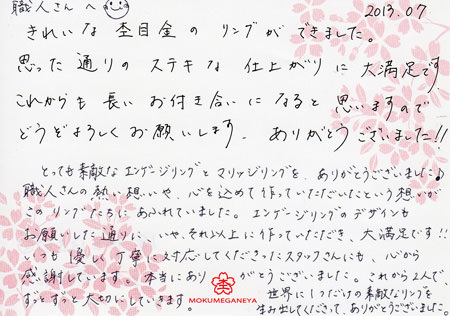 職人さんへ
2013.07
きれいな杢目金のリングができました。
思った通りのステキな仕上がりに大満足です
これからも長いお付き合いになると思いますので
どうぞよろしくお願いします。ありがとうございました!!
とっても素敵なエンゲージリングとマリッジリングを、ありがとうございました♪
職人さんの熱い想いや、心を込めて作っていただいたという想いが
このリングたちにあふれていました。エンゲージリングのデザインも
お願いした通りに、いや、それ以上に作っていただき、大満足です!!
いつも優しく丁寧に対応してくださったスタッフさんにも、心から
感謝しています。本当にありがとうございました。これから2人で、
ずっとずっと大切にしていきます。
世界に1つだけの素敵なリングを
生み出してくださって、ありがとうございました。
杢
MOKUMEGANEYA